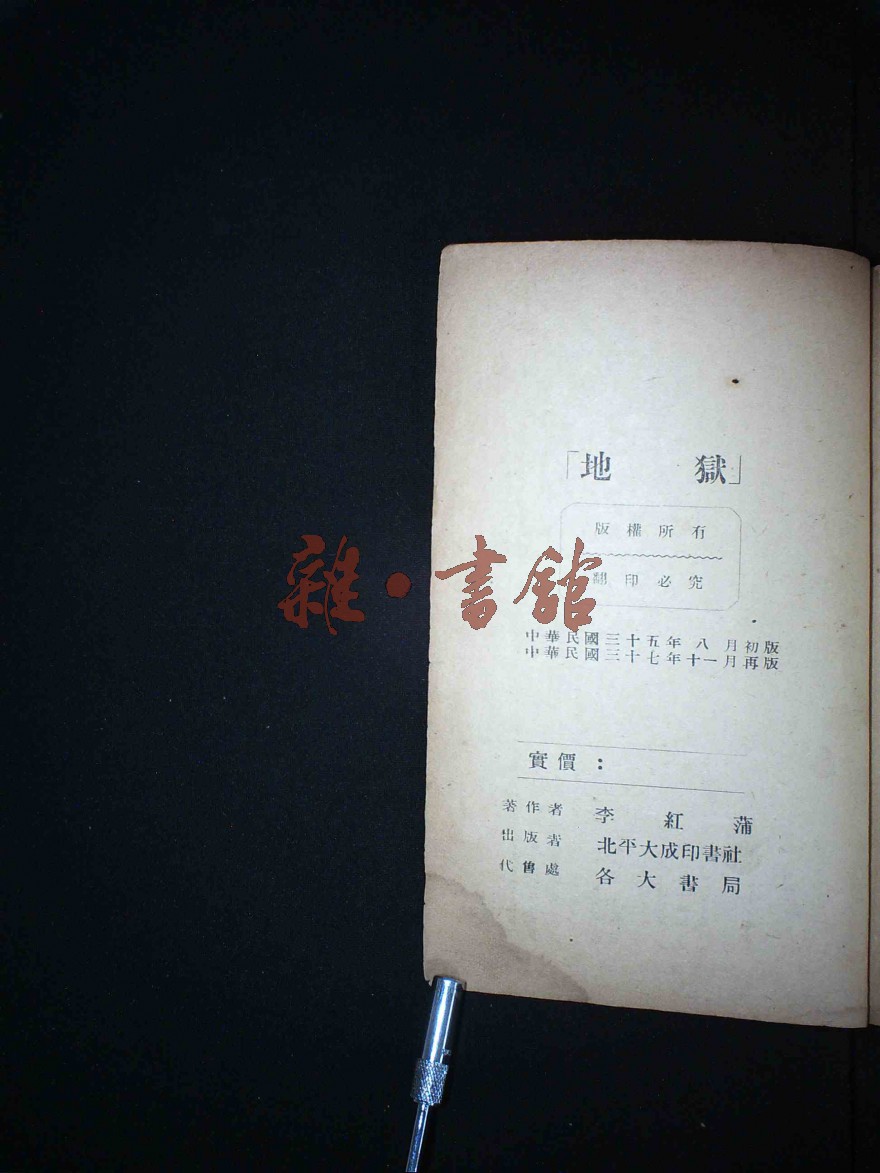 「地獄」
版權所有
翻印必究
雜·書館
中華民國三十五年八月初版
中華民國三十七年十一月再版
實價：
著作者 李紅蒲
出版者 北平大成印書社
代售處 各大書局